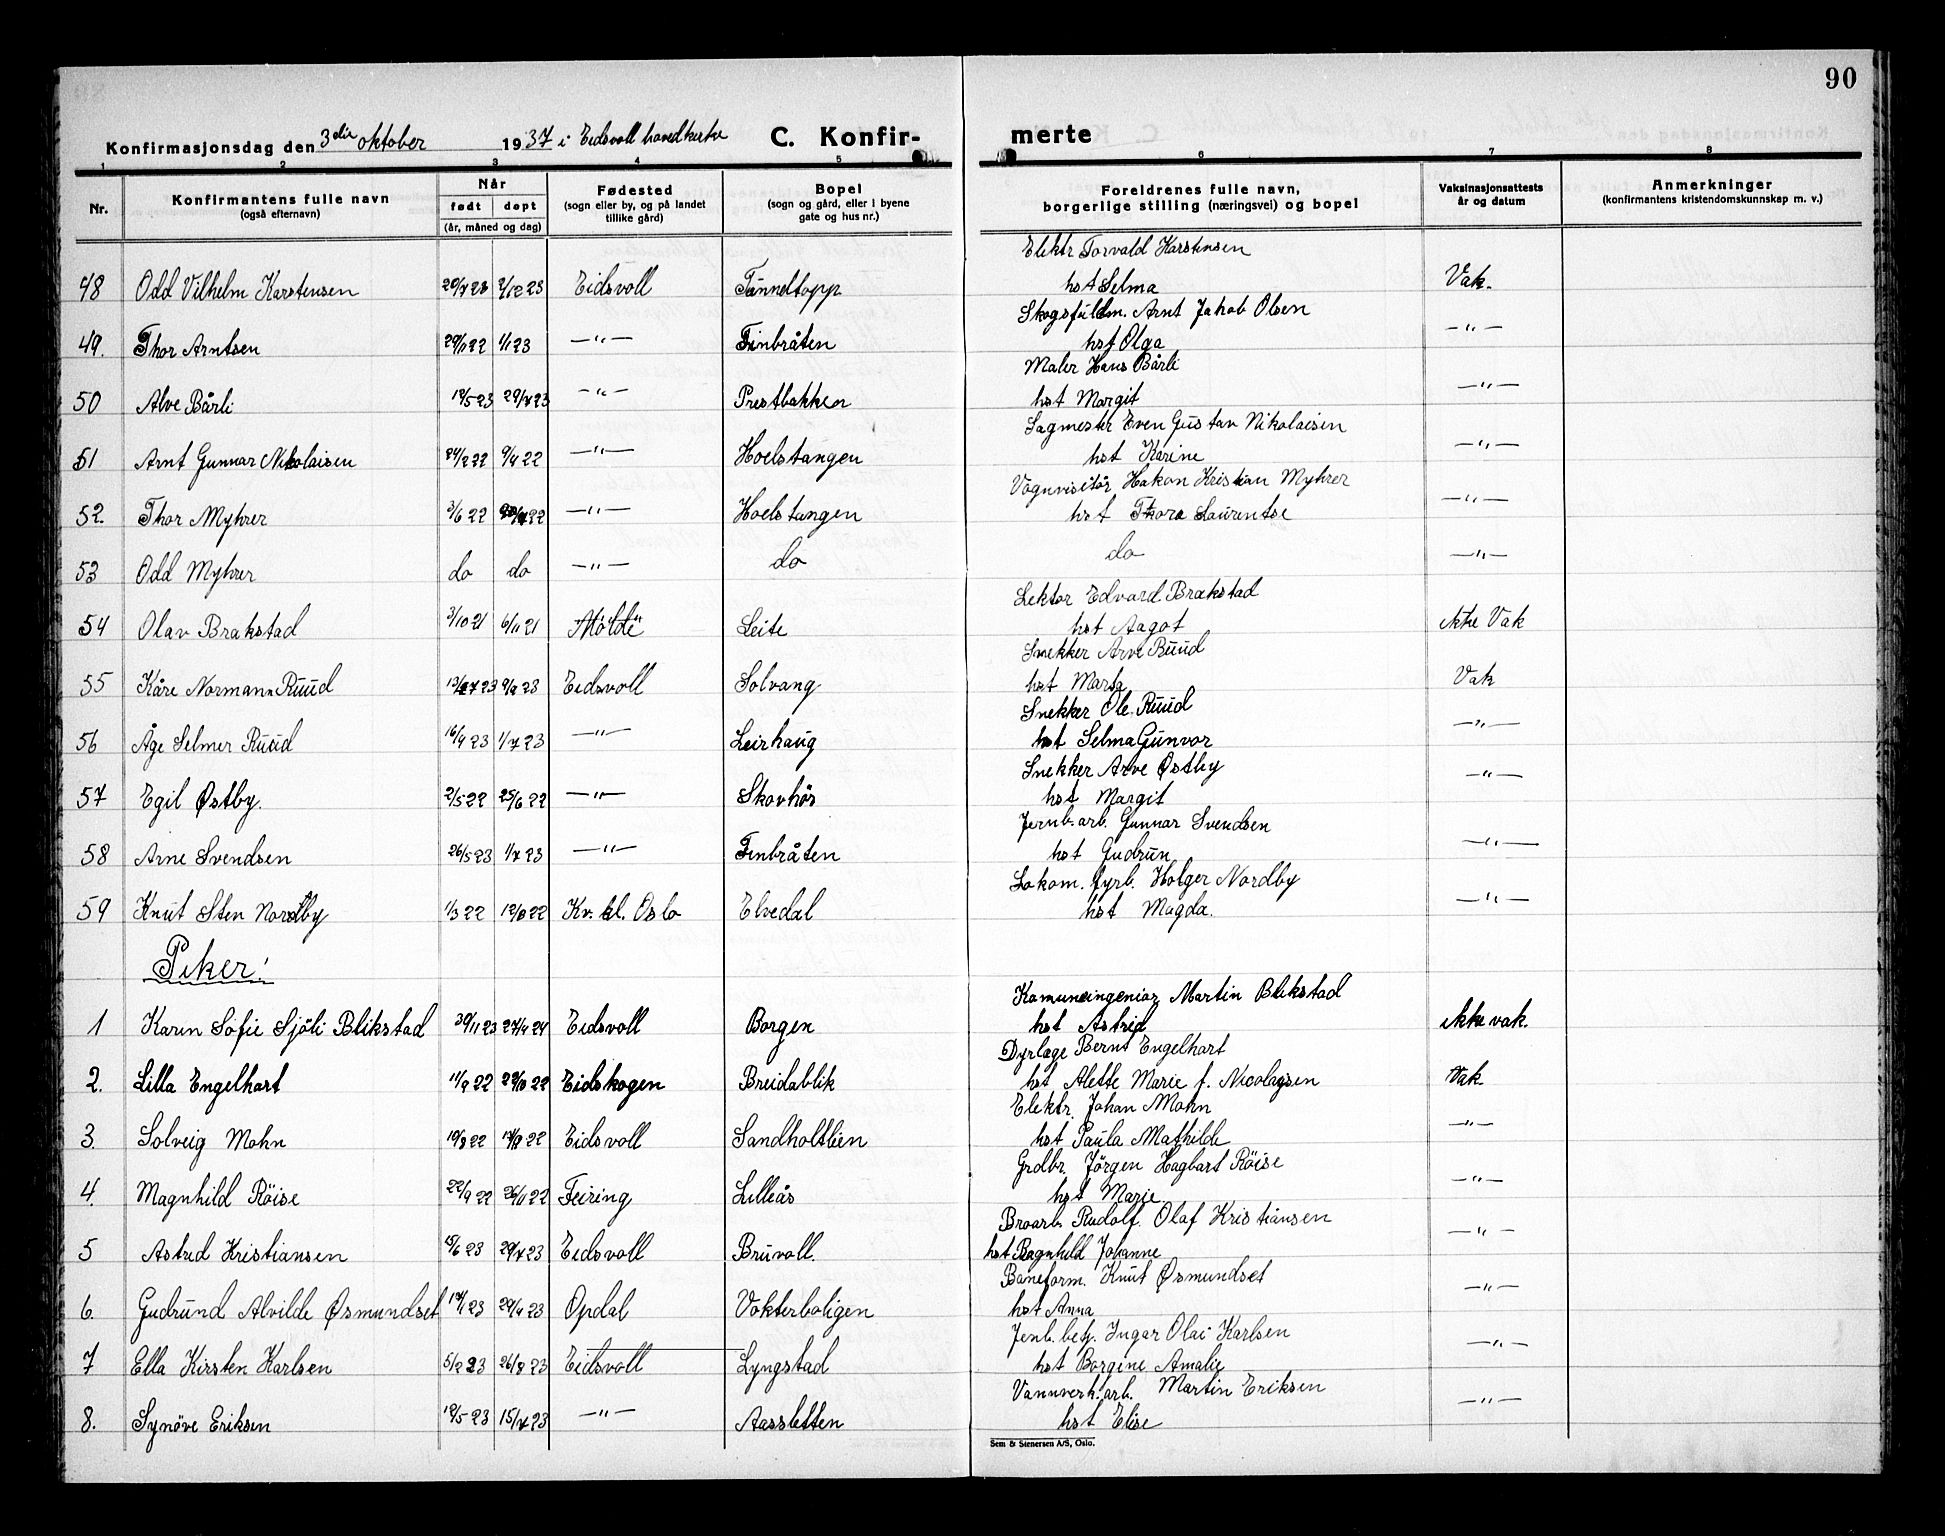 90
Konfirmasjonsdag den 3die oktober 1937 i Eidsvoll hovedkirke C. Konfir- merte
1 2 3 4 5 6 7 8
Nr. Konfirmantens fulle navn (også efternavn) Når født døpt (år, måned og dag) Fødested (sogn eller by, og på landet tillike gård) Bopel (sogn og gård, eller i byene gate og hus nr.) Foreldrenes fulle navn, borgerlige stilling (næringsvei) og bopel Vaksinasjonsattests år og datum Anmerkninger (konfirmantens kristendomskunnskap m. v.)
Elektr Torvald Karstensen
48 Odd Vilhelm Karstensen 20/7 23 2/12 23 Eidsvoll Tunneltopp hst Selma Vak.
Skogsfullm. Arnt Jakob Olsen
49. Thor Arntsen 1/1 23 —"— Finbråten hst Olga —"—
Maler Hans Bårli
50 Alve Bårli 19/5 23 29/7 23 —"— Prestbakken hst Margit —"—
Sagmester Even Gustav Nikolaisen
51 Arnt Gunnar Nikolaisen 24/2 22 9/4 22 —"— Hoelstangen hst Karine —"—
Vognvisitør Hakon Kristian Myhrer
52. Thor Myhrer 3/6 22 —"— Hoelstangen hst Thora Laurentse —"—
53 Odd Myhrer do do —"— do do —"—
Lektor Edvard Brakstad
54 Olav Brakstad 3/10 21 6/11 21 Molde Leite hst Aagot ikke Vak
Snekker Arve Ruud
55 Kåre Normann Ruud Eidsvoll Solvang hst Marta Vak
Snekker Ole Ruud
56 Åge Selmer Ruud 16/4 23 1/7 23 —"— Leirhaug hst Selma Gunvor —"—
Snekker Arve Østby
57 Egil Østby. 2/5 22 25/6 22 —"— Skovhös hst Margit —"—
Jernb.arb. Gunnar Svendsen
58 Arne Svendsen 26/5 23 1/7 23 —"— Finbråten hst Gudrun —"—
Lokom. fyrb. Holger Nordby
59 Knut Sten Nordby 1/3 22 Kv. kl. Oslo Elvedal hst Magda. —"—
Piker!
Komuneingeniør Martin Blikstad
1 Karin Sofie Sjöli Blikstad 30/11 23 27/4 24 Eidsvoll Borgen hst Astrid ikke vak.
Dyrlæge Bernt Engelhart
2. Lilla Engelhart 11/9 22 Eidskogen Breidablik hst Alette Marie f. Nicolaysen Vak.
Elektr. Johan Mohn
3. Solveig Mohn Eidsvoll Sandholtlien hst Paula Mathilde —"—
Grdbr. Jörgen Hagbart Röise
4. Magnhild Röise 22/9 22 26/11 22 Feiring Lilleås hst Marie —"—
Broarb. Rudolf Olaf Kristiansen
5 Astrid Kristiansen 15/6 23 29/7 23 Eidsvoll Bruvoll. hst Ragnhild Johanne —"—
Baneform. Knut Øsmundset
6. Gudrund Alvilde Øsmundset 29/4 23 Opdal Vokterboligen hst Anna —"—
Jenb.betj. Ingar Olai Karlsen
7 Ella Kirsten Karlsen 5/2 23 26/8 23 Eidsvoll Lyngstad hst Borgine Amalie —"—
Vannverk.arb. Martin Eriksen
8. Synöve Eriksen 19/5 23 15/7 23 —"— Aassletten hst Elise —"—
Sem & Stenersen A/S, Oslo.